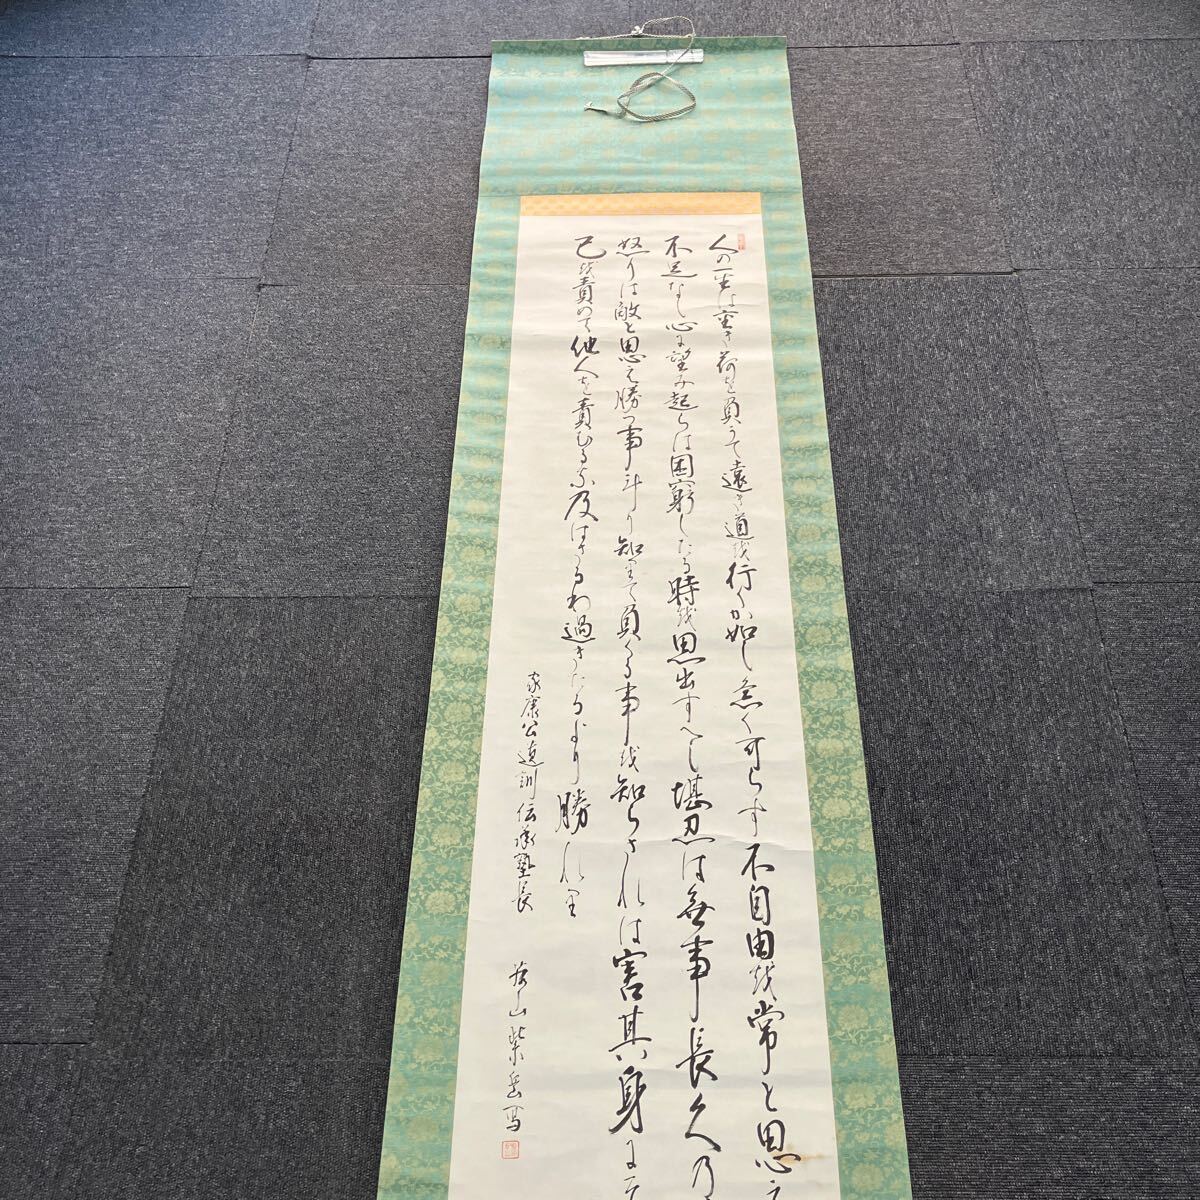 人の一生は重き荷を負うて遠き道越行くか如し急く可らす不自由越常と思え
不足なし心に望み起らは困窮したる時越思出すへし堪忍は無事長久乃
怒りは敵と思え勝つ事斗り知里て負くる事越知らされは害其身にそ
己越責めて他人を責むるな及はさるわ過きたるより勝れり
家康公遺訓伝承塾長
山紫岳写